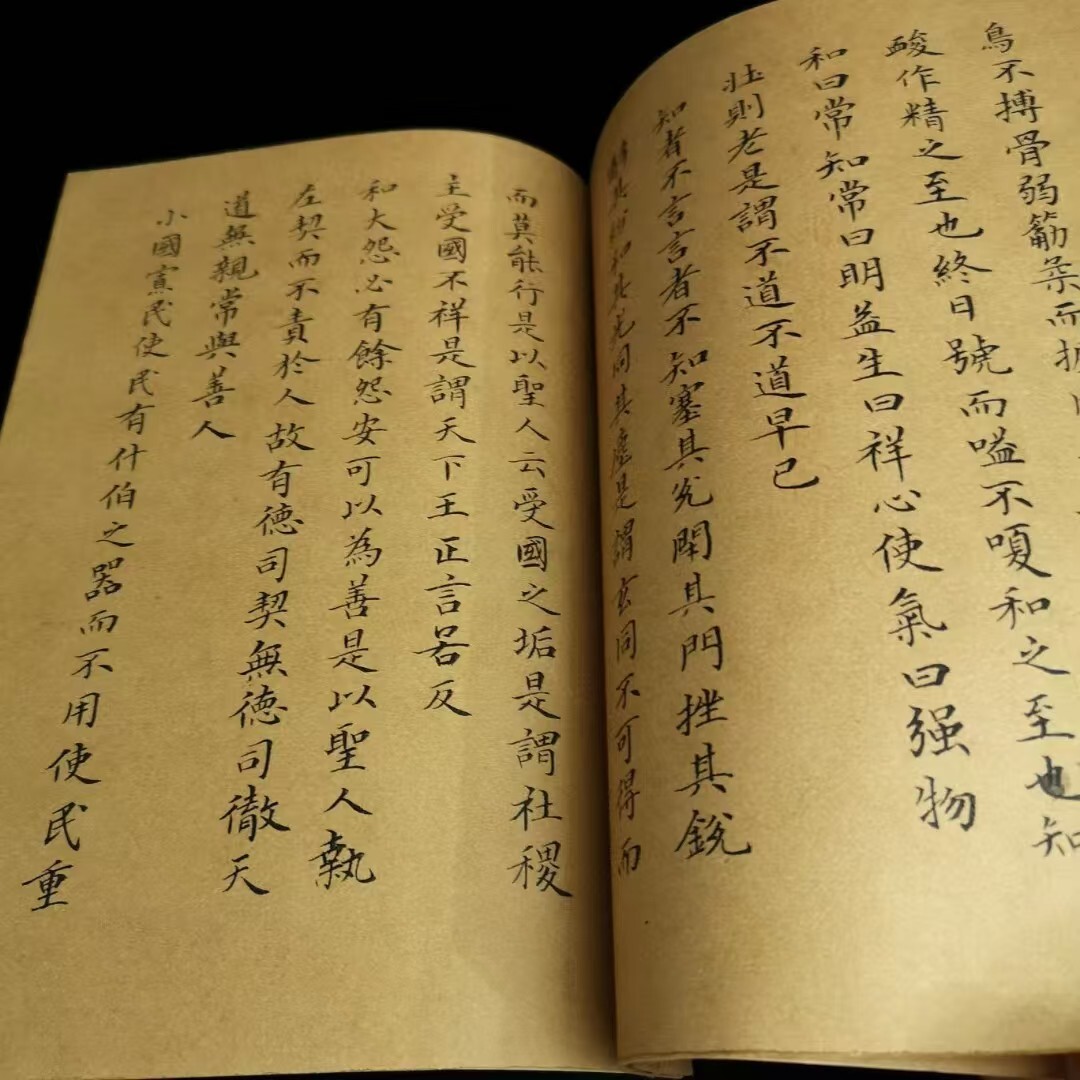 鳥不搏骨弱筋柔而握
酸作精之至也終日號而嗌不嗄和之至也知
和曰常知常曰明益生曰祥心使氣曰强物
壯則老是謂不道不道早已
知者不言言者不知塞其兌閉其門挫其銳
其紛和其光同其塵是謂玄同不可得而
而莫能行是以聖人云受國之垢是謂社稷
主受國不祥是謂天下王正言若反
和大怨必有餘怨安可以為善是以聖人執
左契而不責於人故有德司契無德司徹天
道無親常與善人
小國寡民使民有什伯之器而不用使民重